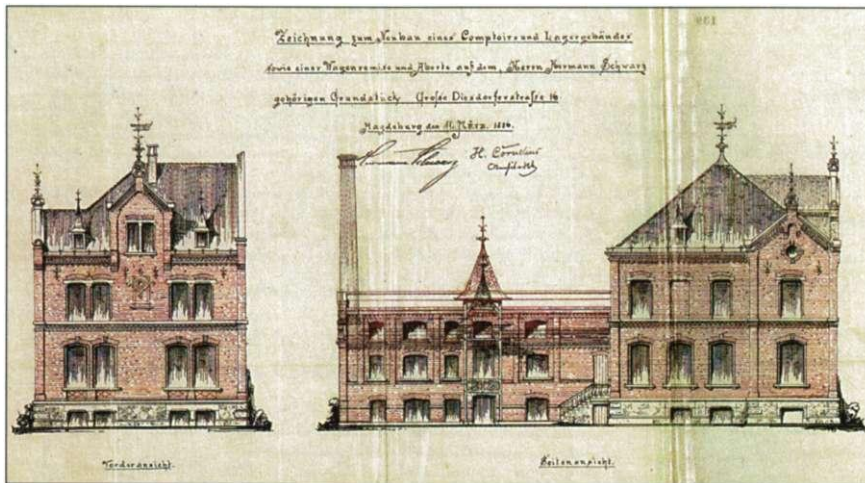 Zeichnung zum Neubau eines Comptoirs und Lagergebäudes
sowie einer Wagenremise und Aborte auf dem, Herrn Hermann Schwarz
gehörigen Grundstück Große Diesdorferstraße 16
Magdeburg den 11. März. 1886.
Vorderansicht.
Seitenansicht.